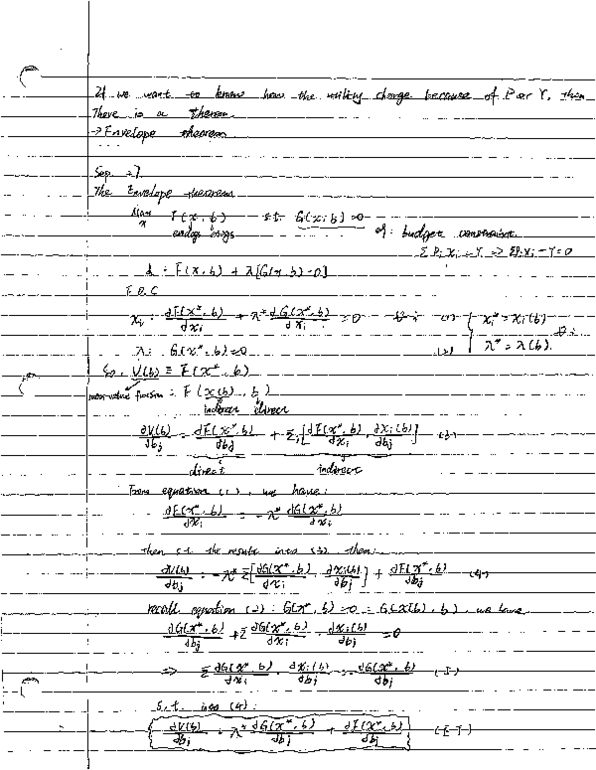 If we want to know how the utility change because of P or Y, then
There is a theorem
→ Envelope theorem
Sep. 27
The Envelope theorem
Max F(x, b) s.t. G(x, b) = 0
x
endog exogs
of: budget constraint
Σ Pi Xi = Y => ΣPiXi - Y = 0
L = F(x, b) + λ[G(x, b) - 0]
F.O.C
xi: ∂F(x*, b)/∂xi + λ* ∂G(x*, b)/∂xi = 0 (1) { xi* = xi(b)
λ: G(x*, b) = 0 (2) λ* = λ(b).
So, V(b) ≡ F(x*, b)
max-value function = F(x(b), b)
indirect direct
∂V(b)/∂bj = ∂F(x*, b)/∂bj + Σi[∂F(x*, b)/∂xi · ∂xi(b)/∂bj] (3)
direct indirect
From equation (1), we have:
∂F(x*, b)/∂xi = -λ* ∂G(x*, b)/∂xi
then s.t. the results into (3), then:
∂V(b)/∂bj = -λ* Σ[∂G(x*, b)/∂xi · ∂xi(b)/∂bj] + ∂F(x*, b)/∂bj (4)
recall equation (2): G(x*, b) = 0 = G(x(b), b), we have
∂G(x*, b)/∂bj + Σ ∂G(x*, b)/∂xi · ∂xi(b)/∂bj = 0
=> Σ ∂G(x*, b)/∂xi · ∂xi(b)/∂bj = -∂G(x*, b)/∂bj (5)
s.t. into (4):
∂V(b)/∂bj = λ* ∂G(x*, b)/∂bj + ∂F(x*, b)/∂bj (E.T)